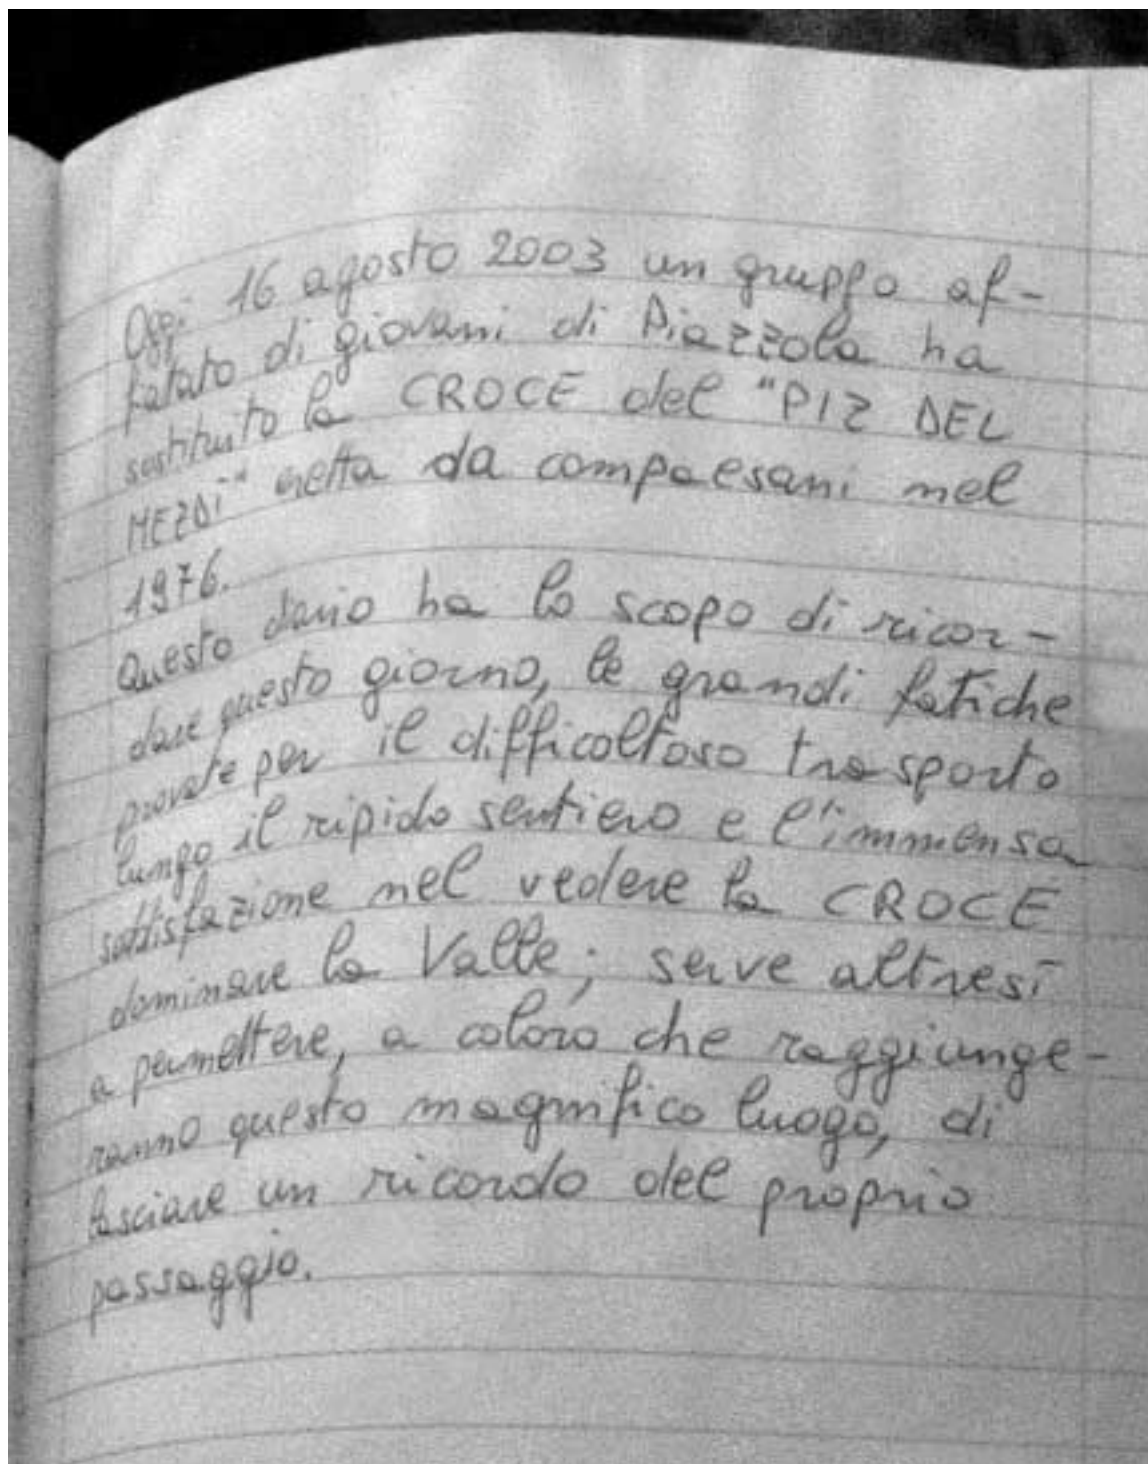 Oggi 16 agosto 2003 un gruppo af-
fiatato di giovani di Piazzola ha
sostituito la CROCE del "PIZ DEL
MEZDÌ" eretta da compaesani nel
1976.
Questo diario ha lo scopo di ricor-
dare questo giorno, le grandi fatiche
provate per il difficoltoso trasporto
lungo il ripido sentiero e l'immensa
soddisfazione nel vedere la CROCE
dominare la Valle; serve altresì
a permettere, a coloro che raggiunge-
ranno questo magnifico luogo, di
lasciare un ricordo del proprio
passaggio.